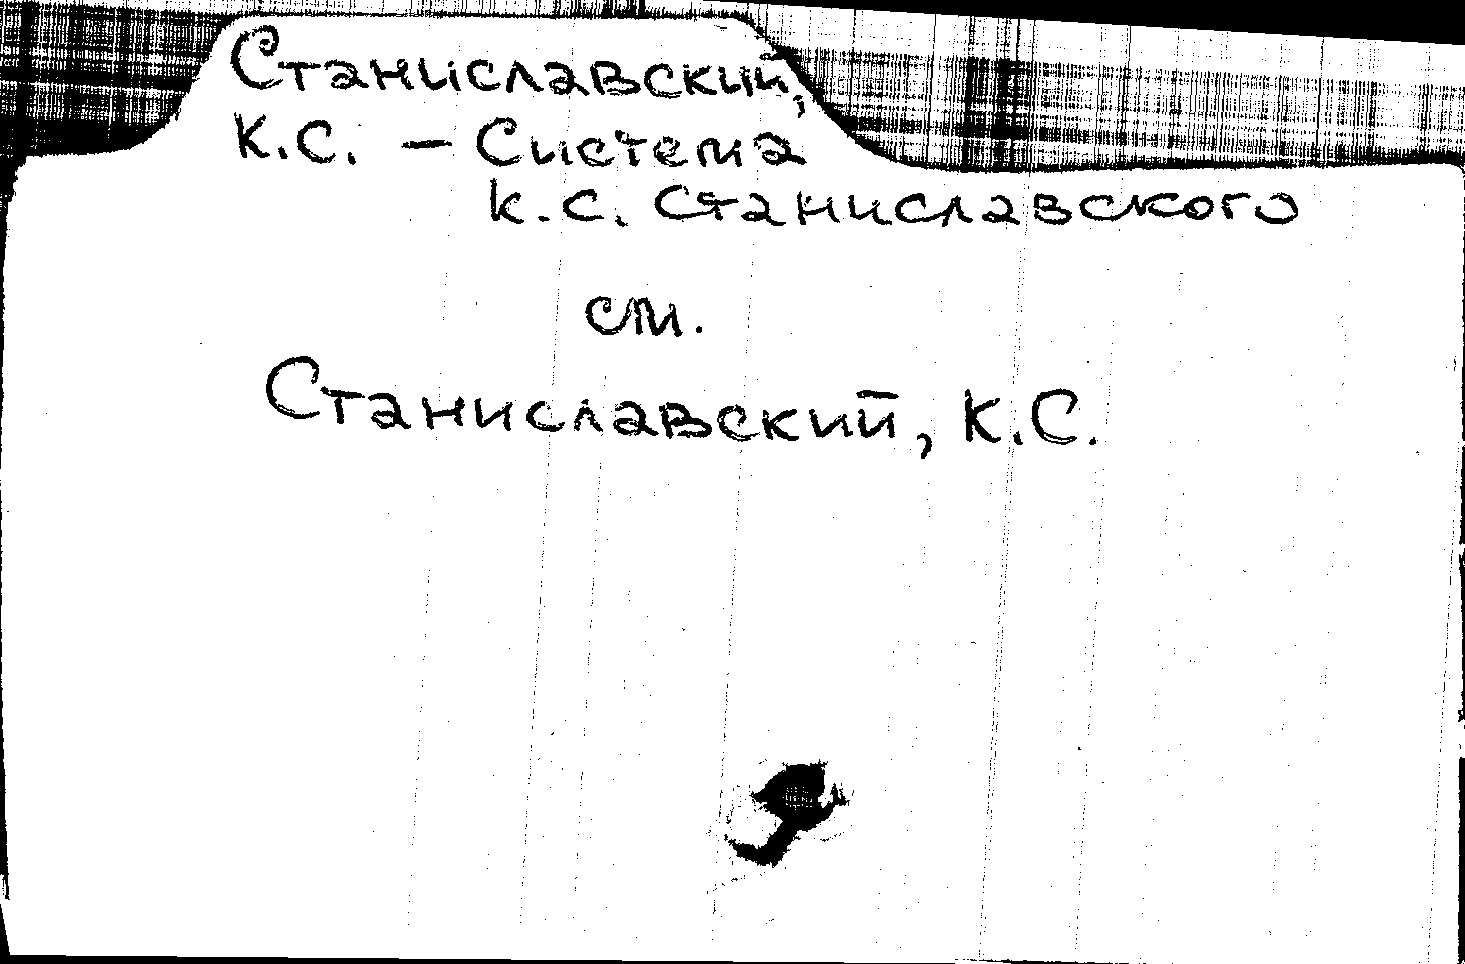 Станиславский,
К.С. – Система
К.С. Станиславского
см.
Станиславский, К.С.